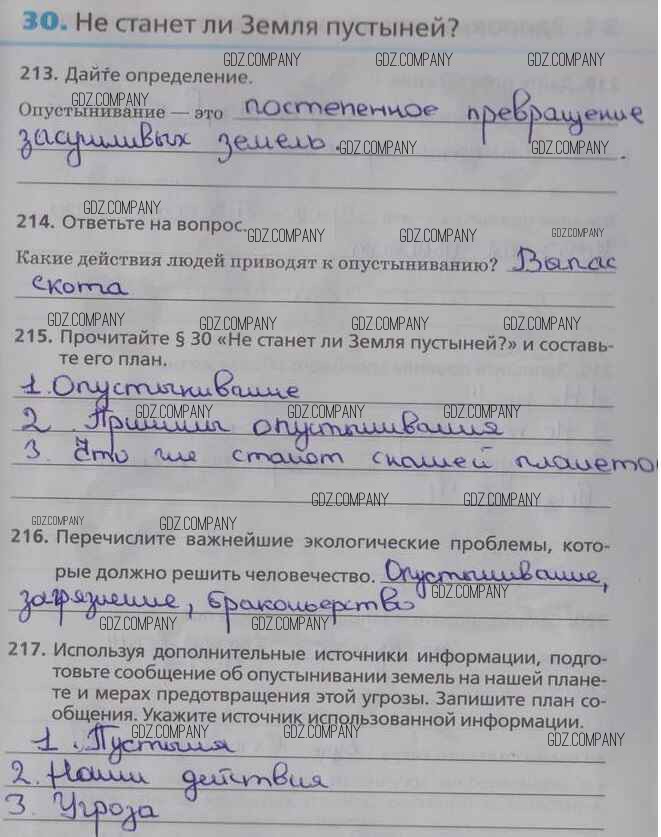 30. Не станет ли Земля пустыней?
GDZ.COMPANY GDZ.COMPANY GDZ.COMPANY
213. Дайте определение.
GDZ.COMPANY
Опустынивание — это постепенное превращение
засушливых земель.
GDZ.COMPANY GDZ.COMPANY
GDZ.COMPANY
214. Ответьте на вопрос.
GDZ.COMPANY GDZ.COMPANY GDZ.COMPANY
Какие действия людей приводят к опустыниванию? Выпас
скота
GDZ.COMPANY GDZ.COMPANY GDZ.COMPANY GDZ.COMPANY
215. Прочитайте § 30 «Не станет ли Земля пустыней?» и составь-
те его план.
1. Опустынивание
GDZ.COMPANY GDZ.COMPANY GDZ.COMPANY
2. Причины опустынивания
3. Что же станет с нашей плането
GDZ.COMPANY GDZ.COMPANY
GDZ.COMPANY GDZ.COMPANY
216. Перечислите важнейшие экологические проблемы, кото-
рые должно решить человечество. Опустынивание,
GDZ.COMPANY
загрязнение, браконьерство
GDZ.COMPANY GDZ.COMPANY
217. Используя дополнительные источники информации, подго-
товьте сообщение об опустынивании земель на нашей плане-
те и мерах предотвращения этой угрозы. Запишите план со-
общения. Укажите источник использованной информации.
GDZ.COMPANY GDZ.COMPANY GDZ.COMPANY
1. Пустыня
2. Наши действия
3. Угроза